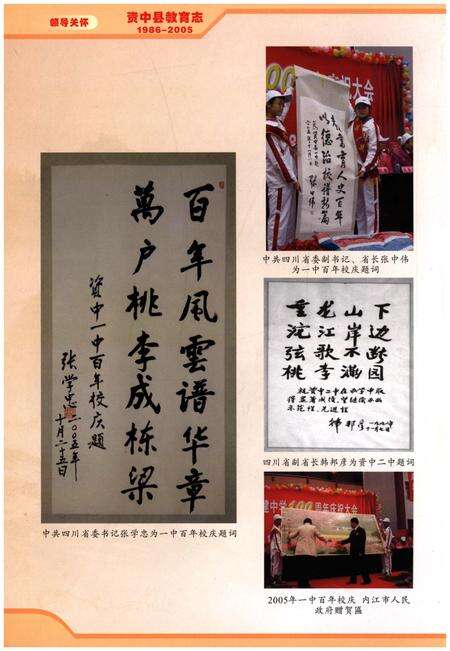 领导关怀
资中县教育志
1986-2005
百年风雲谱华章
萬户桃李成栋梁
资中一中百年校庆题
张学忠
二〇〇五年
十月二十五日
中共四川省委书记张学忠为一中百年校庆题词
庆祝大会
育人史百年
以德治校谱新篇
张中伟
中共四川省委副书记、省长张中伟
为一中百年校庆题词
重龙山下
沱江岸边
弦歌不断
桃李满园
韩邦彦
四川省副省长韩邦彦为资中二中题词
周年庆祝大会
2005年一中百年校庆 内江市人民
政府赠贺匾